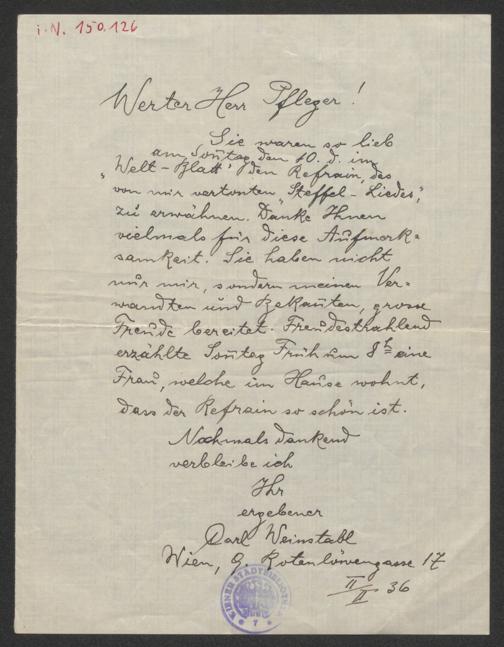 i.N. 150.126
Werter Herr Pfleger!
Sie waren so lieb
am Sonntag den 10. d. im
"Welt-Blatt" den Refrain, des
von mir vertonten "Steffel-Liedes",
zu erwähnen. Danke Ihnen
vielmals für diese Aufmerk-
samkeit. Sie haben nicht
nur mir, sondern meinen Ver-
wandten und Bekannten, grosse
Freude bereitet. Freudestrahlend
erzählte Sonntag Früh um 8h eine
Frau, welche im Hause wohnt,
dass der Refrain so schön ist.
Nochmals dankend
verbleibe ich
Ihr
ergebener
Carl Weinstabl
Wien, 9. Rotenlöwengasse 17
II 36
WIENER STADTBIBLIOTHEK
7